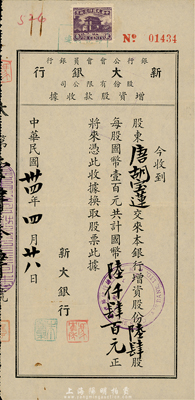 № 01434
銀行公會會員銀行
新大銀行
股份有限公司
增資股款收據
今收到
股東唐胡寄蓮交來本銀行增資股份陸拾肆股
每股國幣壹百元共計國幣陸仟肆百元正
將來憑此收據換取股票此據
新大銀行
中華民國卅四年四月廿八日